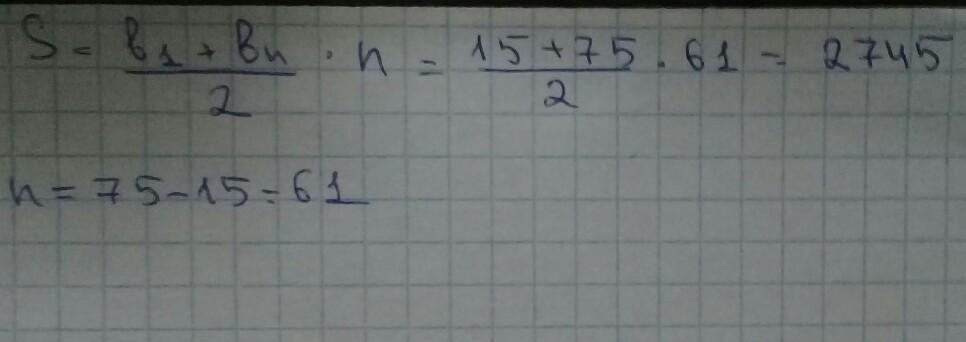 S = (b₁ + bₙ)/2 · n = (15 + 75)/2 · 61 = 2745
n = 75 - 15 = 61